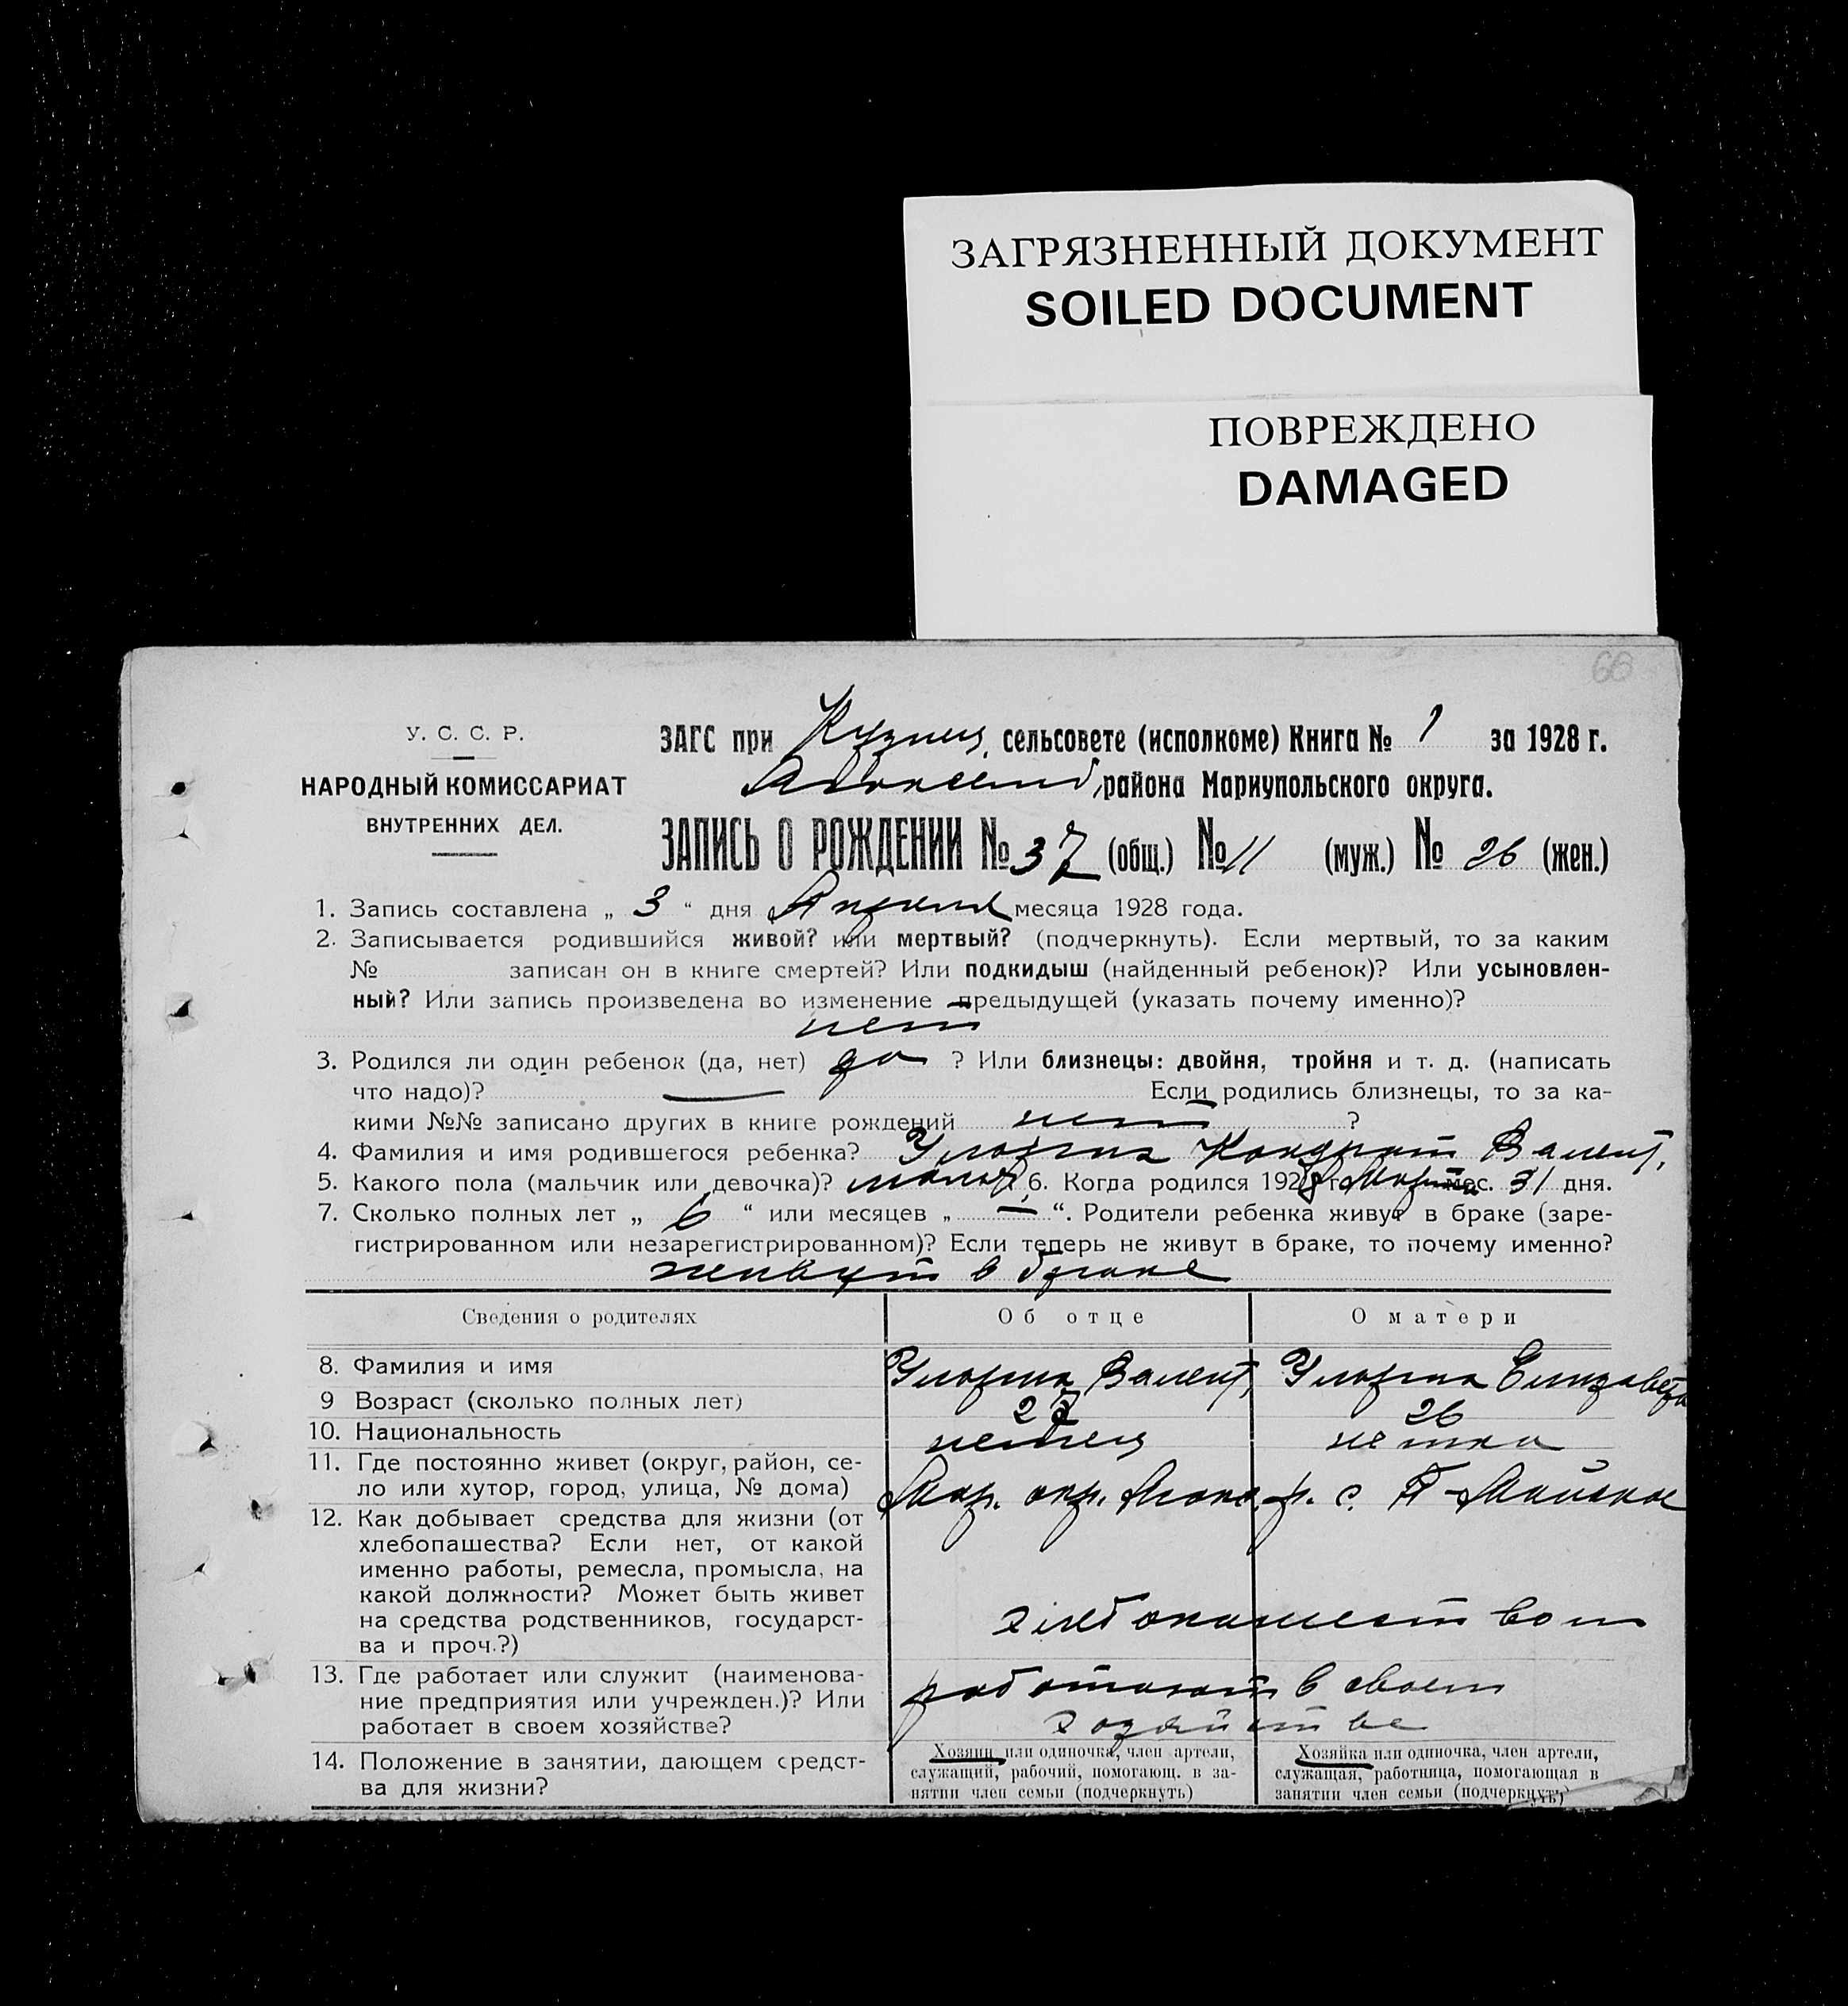 ЗАГРЯЗНЕННЫЙ ДОКУМЕНТ
SOILED DOCUMENT
ПОВРЕЖДЕНО
DAMAGED
66
У. С. С. Р.
НАРОДНЫЙ КОМИССАРИАТ
ВНУТРЕННИХ ДЕЛ.
ЗАГС при Кузнец. сельсовете (исполкоме) Книга № 1 за 1928 г.
района Мариупольского округа.
ЗАПИСЬ О РОЖДЕНИИ № 37 (общ.) № 11 (муж.) № 26 (жен.)
1. Запись составлена „ 3 “ дня Апреля месяца 1928 года.
2. Записывается родившийся живой? или мертвый? (подчеркнуть). Если мертвый, то за каким
№ записан он в книге смертей? Или подкидыш (найденный ребенок)? Или усыновлен-
ный? Или запись произведена во изменение предыдущей (указать почему именно)?
нет
3. Родился ли один ребенок (да, нет) да ? Или близнецы: двойня, тройня и т. д. (написать
что надо)? — Если родились близнецы, то за ка-
кими №№ записано других в книге рождений нет ?
4. Фамилия и имя родившегося ребенка? Кондрат Валент.
5. Какого пола (мальчик или девочка)? мальч. 6. Когда родился 1928 г. Марта мес. 31 дня.
7. Сколько полных лет „ 6 “ или месяцев „ — “. Родители ребенка живут в браке (заре-
гистрированном или незарегистрированном)? Если теперь не живут в браке, то почему именно?
живут в браке
Сведения о родителях Об отце О матери
8. Фамилия и имя Валент. Елизавета
9 Возраст (сколько полных лет) 27 26
10. Национальность немец немка
11. Где постоянно живет (округ, район, се-
ло или хутор, город, улица, № дома) Мар. окр. р. с. Майское
12. Как добывает средства для жизни (от
хлебопашества? Если нет, от какой
именно работы, ремесла, промысла, на
какой должности? Может быть живет
на средства родственников, государст-
ва и проч.?)
хлебопашеством
13. Где работает или служит (наименова-
ние предприятия или учрежден.)? Или
работает в своем хозяйстве?
работают в своем
хозяйстве
14. Положение в занятии, дающем средст-
ва для жизни?
Хозяин или одиночка, член артели,
служащий, рабочий, помогающ. в за-
нятии член семьи (подчеркнуть)
Хозяйка или одиночка, член артели,
служащая, работница, помогающая в
занятии член семьи (подчеркнуть)